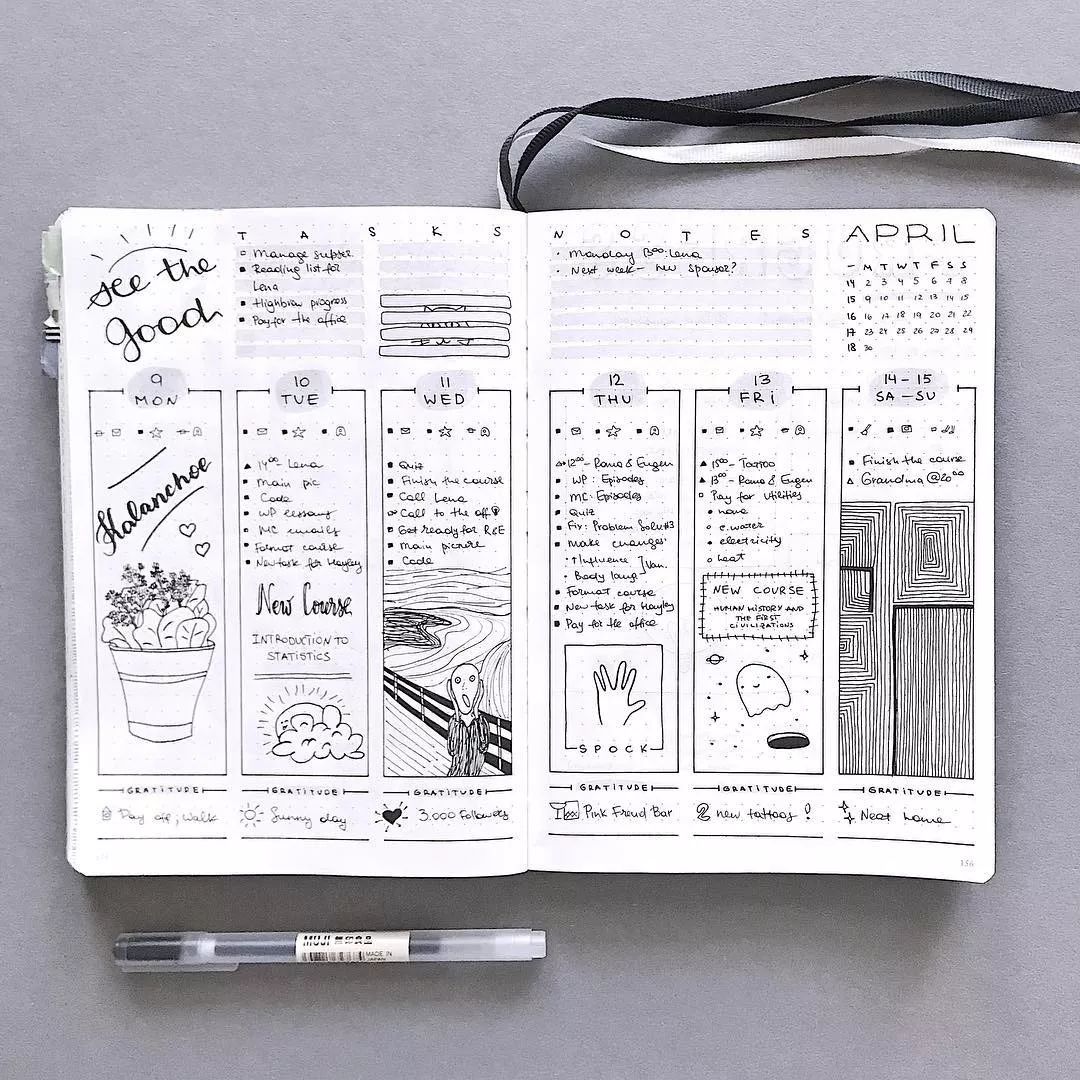 see the
good
T A S K S
Manage
Reading list for
Lena
Highbrow progress
Pay for the office
N O T E S
Monday 13:00: Lena
Next week – new sponsor?
APRIL
– M T W T F S S
14 2 3 4 5 6 7 8
15 9 10 11 12 13 14 15
16 16 17 18 19 20 21 22
17 23 24 25 26 27 28 29
18 30
9
MON
Kalanchoe
GRATITUDE
Day off; walk
10
TUE
14⁰⁰ – Lena
Main pic
Code
WP lessons
MC emails
Format course
New task for Hayley
New Course
INTRODUCTION TO
STATISTICS
GRATITUDE
Sunny day
11
WED
Quiz
Finish the course
Call Lena
Call to the off
Get ready for R&E
Main picture
Code
GRATITUDE
3.000 Followers
12
THU
12⁰⁰ – Roma & Eugen
WP: Episodes
MC: Episodes
Quiz
Fix: Problem Solv#3
Make changes
Influence
Body lang. Van.
Format course
New task for Hayley
Pay for the office
SPOCK
GRATITUDE
Pink Freud Bar
13
FRI
15⁰⁰ – Tattoo
13⁰⁰ – Roma & Eugen
Pay for Utilities
e.water
electricity
heat
NEW COURSE
HUMAN HISTORY AND
THE FIRST
CIVILIZATIONS
GRATITUDE
new tattoos!
14 – 15
SA – SU
Finish the course
Grandma @20⁰⁰
GRATITUDE
Neat home
156
MUJI
MADE IN
JAPAN